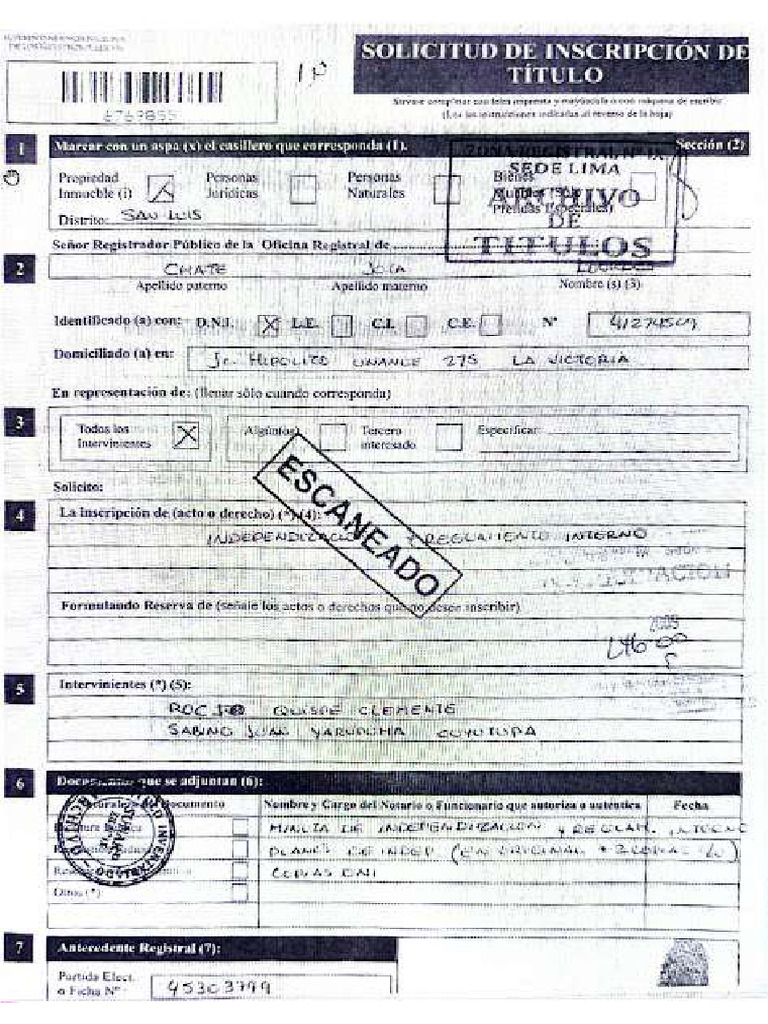 SOLICITUD DE INSCRIPCIÓN DE
TÍTULO
1P
6769855
Sírvase completar con letra imprenta y mayúscula o con máquina de escribir
(Lea las instrucciones indicadas al reverso de la hoja)
1 Marcar con un aspa (x) el casillero que corresponda (1). Sección (2)
Propiedad Inmueble (i) X Personas Jurídicas Personas Naturales Bienes
Distrito: SAN LUIS
SEDE LIMA
ARCHIVO
DE
TITULOS
Señor Registrador Público de la Oficina Registral de
2 CHATE JOTA LOURDES
Apellido paterno Apellido materno Nombre (s) (3)
Identificado (a) con: D.N.I. X L.E. C.I. C.E. Nº
Domiciliado (a) en: Jr. HIPOLITO UNANUE 275 LA VICTORIA
En representación de: (llenar sólo cuando corresponda)
3 Todos los Intervinientes X Algún(os) Tercero interesado Especificar:
Solicito:
ESCANEADO
4 La inscripción de (acto o derecho) (*) (4):
INDEPENDIZACION Y REGLAMENTO INTERNO
Formulando Reserva de (señale los actos o derechos que no desee inscribir)
2009
5 Intervinientes (*) (5):
ROCIO QUISPE CLEMENTE
SABINO JUAN
6 Documentos que se adjuntan (6):
Naturaleza del Documento Nombre y Cargo del Notario o Funcionario que autoriza o autentica Fecha
MINUTA DE INDEPENDIZACION Y REGLAM. INTERNO
PLANOS DE INDEP. (EN ORIGINAL + 2 COPIAS
COPIAS DNI
Otros (*)
7 Antecedente Registral (7):
Partida Elect.
o Ficha Nº : 45303799